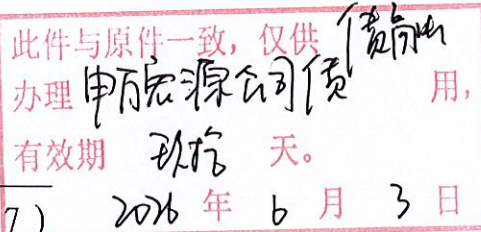 此件与原件一致，仅供
办理申万宏源公司债 用，
有效期 玖拾 天。
7）
2026 年 6 月 3 日